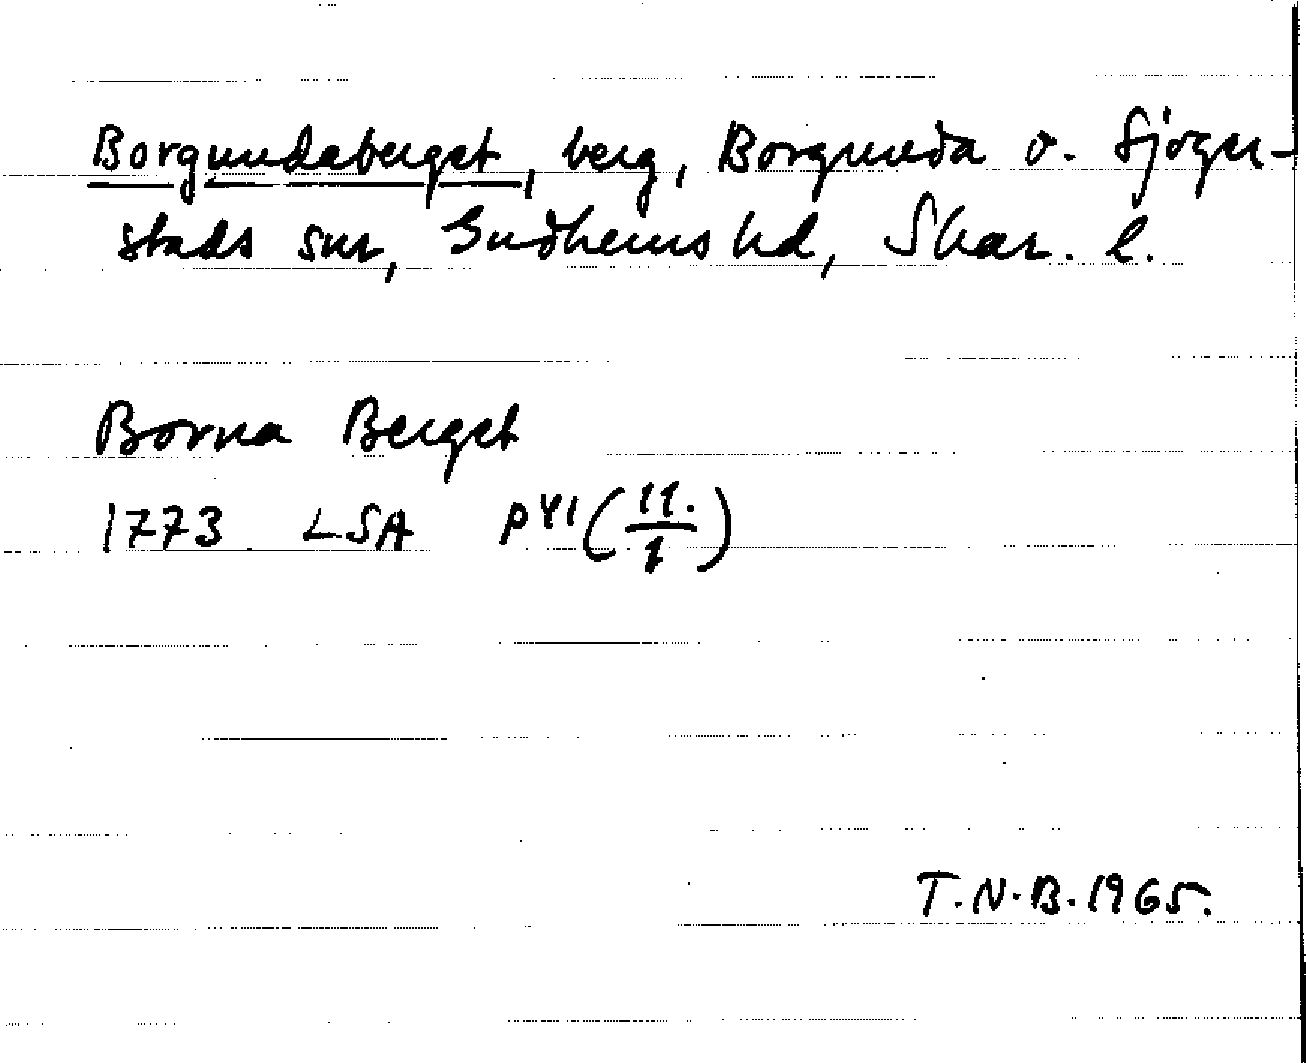 Borgundaberget, berg, Borgunda o. Sjoger-
stads snr, Gudhems hd, Skar. l.
Borna Berget
1773 LSA P41 (11./1)
T.N.B. 1965.